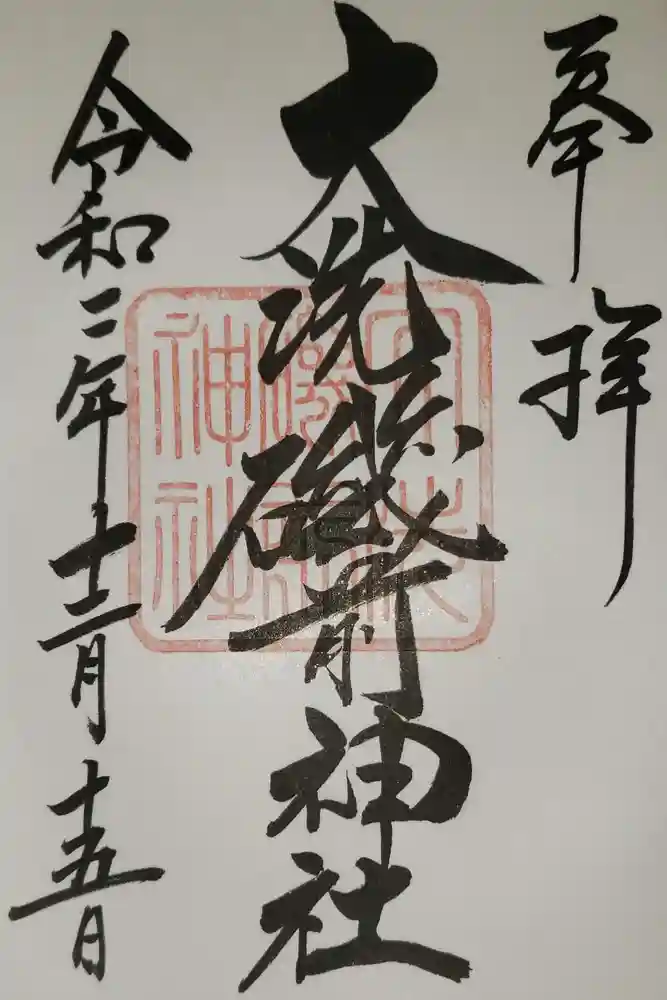 奉拝
大洗磯前神社
令和二年十二月十五日
大洗
磯前
神社